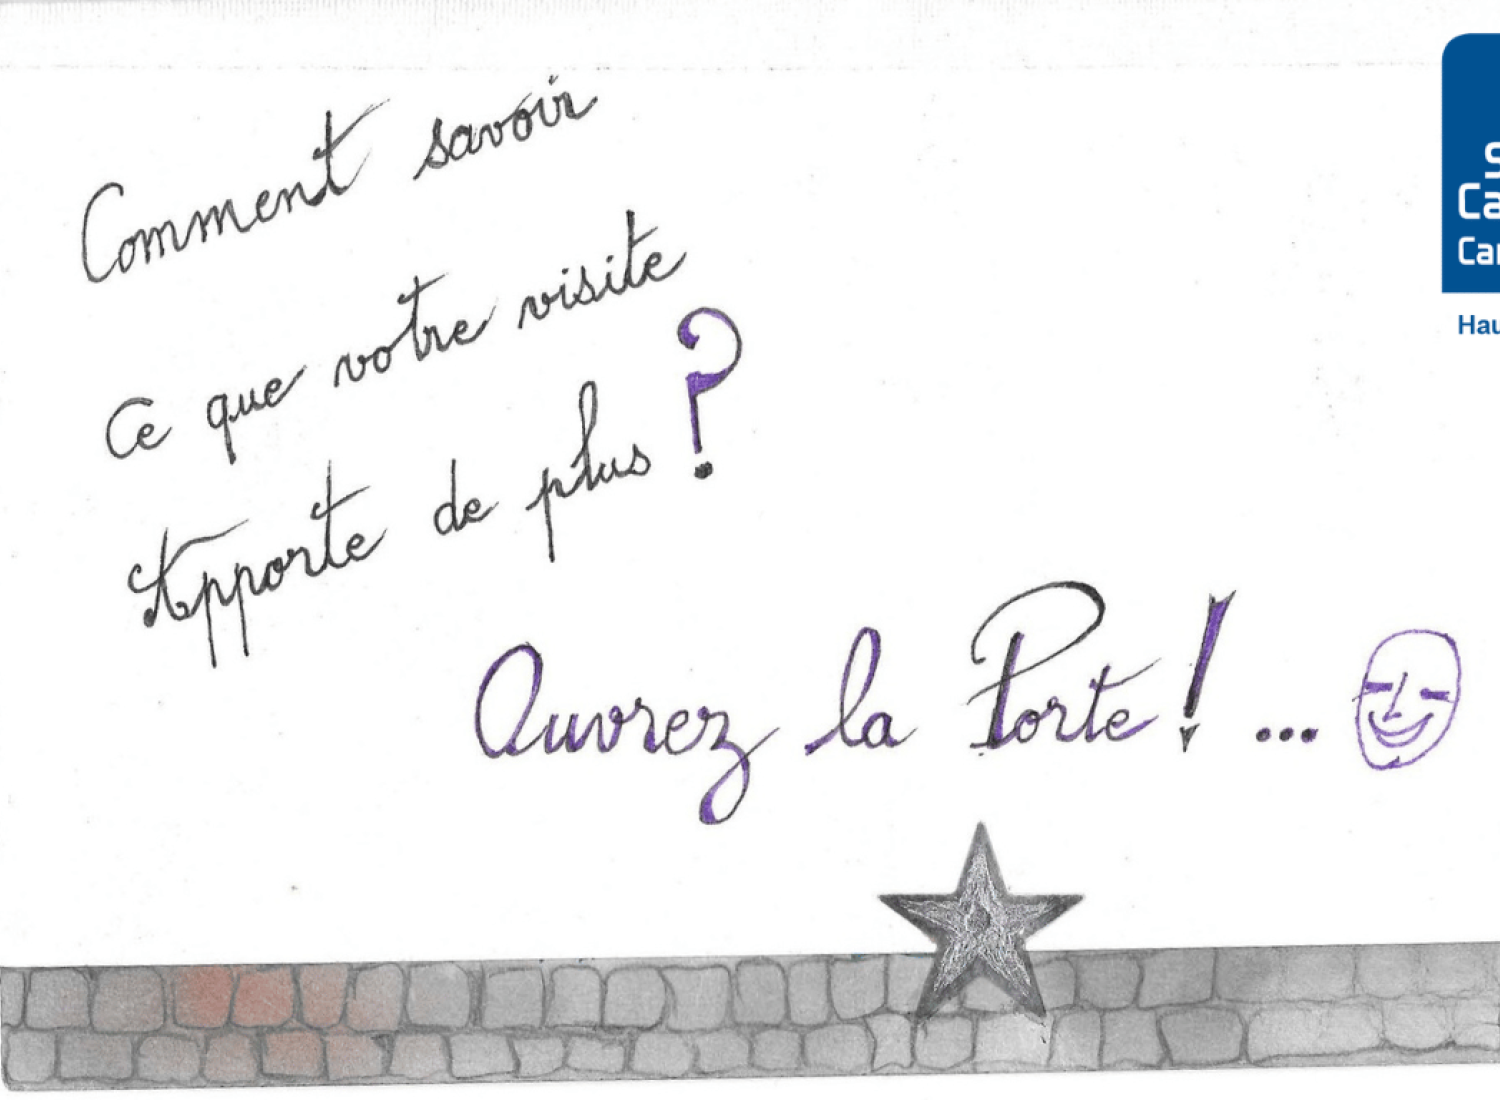 Comment savoir
Ce que votre visite
Apporte de plus ?
Ouvrez la Porte ! ...
Ca
Hau